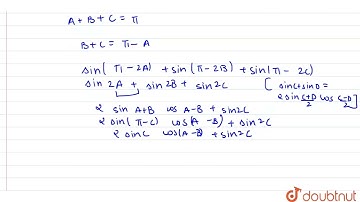 A + B + C = π
B + C = π - A
sin(π - 2A) + sin(π - 2B) + sin(π - 2C)
sin 2A + sin 2B + sin 2C [ sinC + sinD =
2 sin C+D/2 cos C-D/2 ]
2 sin A+B cos A-B + sin2C
2 sin(π-C) cos(A-B) + sin2C
2 sinC cos(A-B) + sin2C
doubtnut